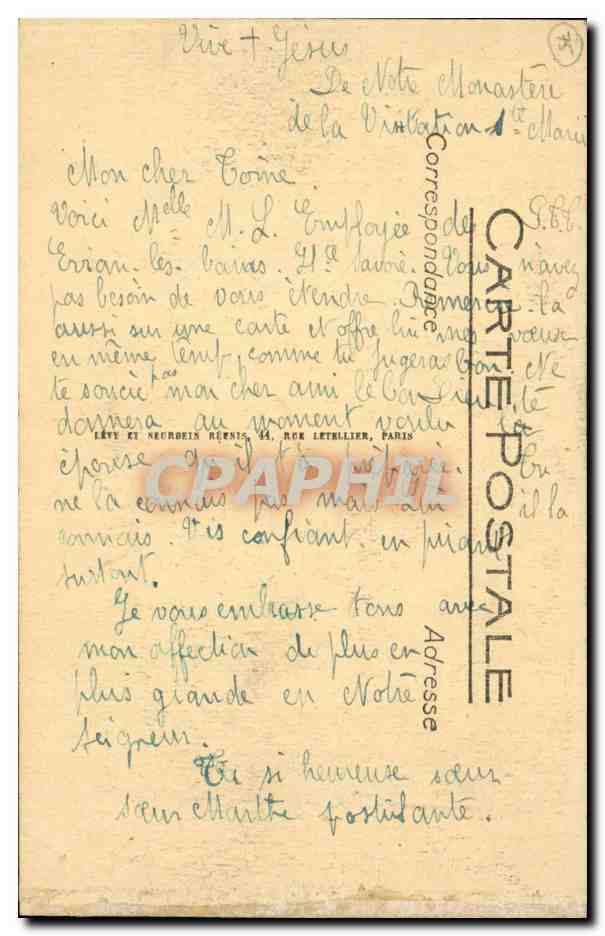 Vive + Jésus
De Notre Monastère
de la Visitation Ste Marie
Mon cher Toine
Voici Melle M. L. Employée des P.T.T.
Evian-les-bains. Hte Savoie. Vous n'avez
pas besoin de vous étendre Remerc la
aussi sur une carte et offre lui mes vœux
en même temp, comme tu jugeras bon Ne
te soucie pas mon cher ami le bon Dieu te
donnera au moment voulu la
épouse qu'il t'a préparée. Tu
ne la connais pas mais Lui il la
connais. Vis confiant en priant
surtout.
Je vous embrasse tous avec
mon affection de plus en
plus grande en Notre
Seigneur.
Ta si heureuse sœur
sœur Marthe postulante.
CARTE POSTALE
Correspondance
Adresse
LÉVY ET NEURDEIN RÉUNIS, 44, RUE LETELLIER, PARIS
CPAPHIL